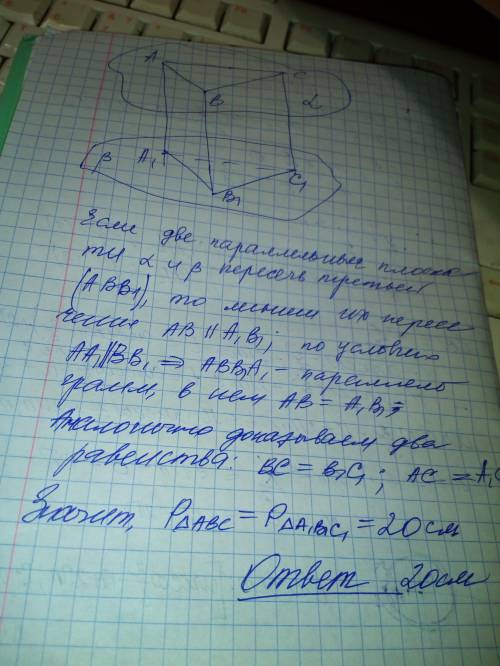 A C
B α
β A₁ C₁
B₁
Если две параллельные плоско
ти α и β пересечь третьей
(ABB₁), то линии их пересе
чения AB ∥ A₁B₁; по условию
AA₁ ∥ BB₁ ⇒ ABB₁A₁ – параллело
грамм, в нем AB = A₁B₁
Аналогично доказываем два
равенства: BC = B₁C₁; AC = A₁C
Значит, P△ABC = P△A₁B₁C₁ = 20см
Ответ 20см